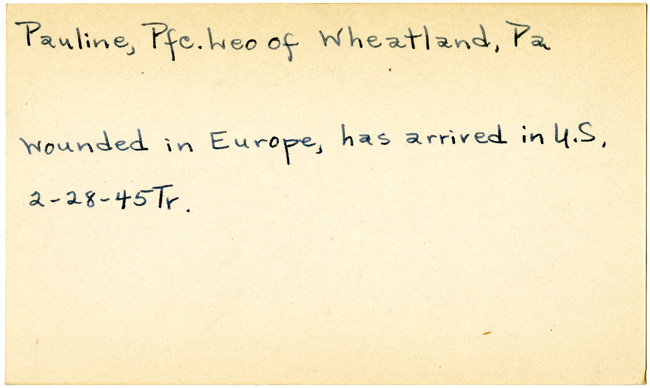 Pauline, Pfc. Leo of Wheatland, Pa
wounded in Europe, has arrived in U.S.
2-28-45 Tr.